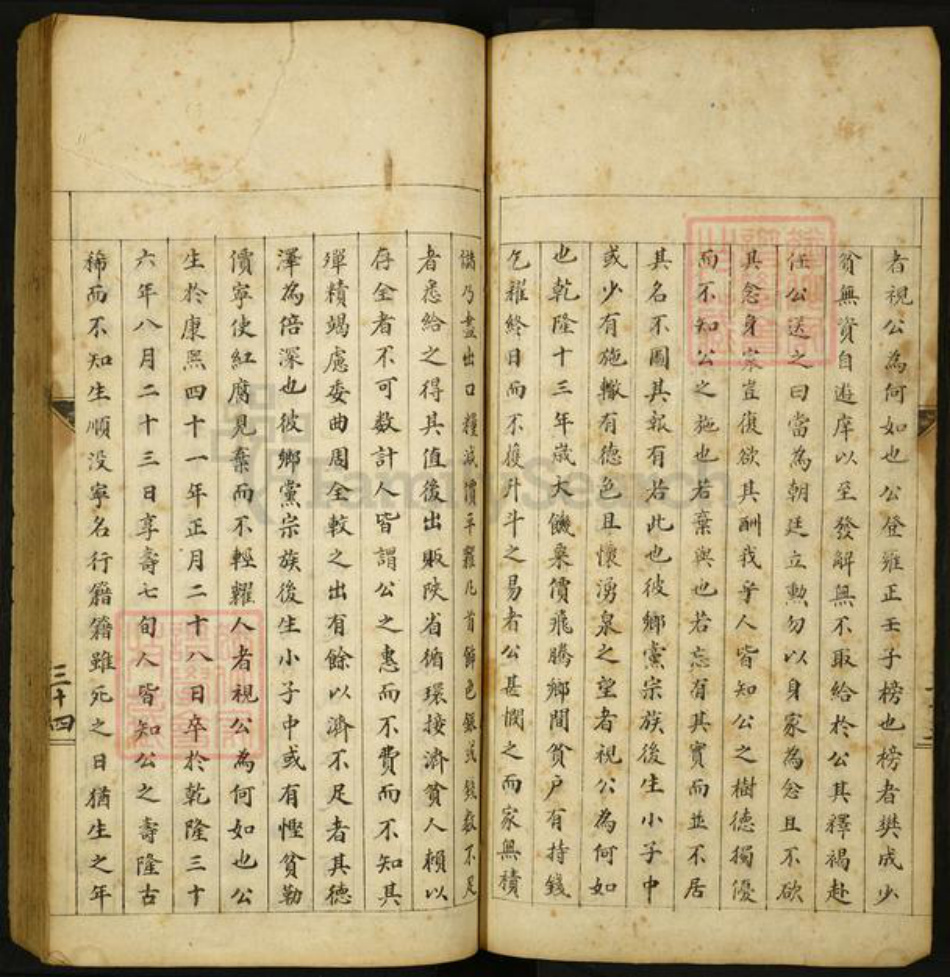 者視公為何如也公登雍正壬子榜也榜者樊成少
貧無資自遊庠以至發解無不取給於公其釋褐赴
任公送之曰當為朝廷立勲勿以身家為念且不欲
其念身家豈復欲其酬我乎人皆知公之樹德獨優
而不知公之施也若棄與也若忘有其實而並不居
其名不圖其報有若此也彼鄉黨宗族後生小子中
或少有施輙有德色且懷湧泉之望者視公為何如
也乾隆十三年歲大饑粟價飛騰鄉間貧户有持錢
乞糴終日而不獲升斗之易者公甚憫之而家無積
儲乃盡出口糧減價平糶凡首飾色銀或錢数不足
者悉給之得其值後出販陜省循環接濟貧人賴以
存全者不可数計人皆謂公之惠而不費而不知其
殫精竭慮委曲周全較之出有餘以濟不足者其德
澤為倍深也彼鄉黨宗族後生小子中或有慳貧勒
價寧使紅腐見棄而不輕糶人者視公為何如也公
生於康熙四十一年正月二十八日卒於乾隆三十
六年八月二十三日享壽七旬人皆知公之壽隆古
稀而不知生順没寧名行籍籍雖死之日猶生之年
三十四
FamilySearch